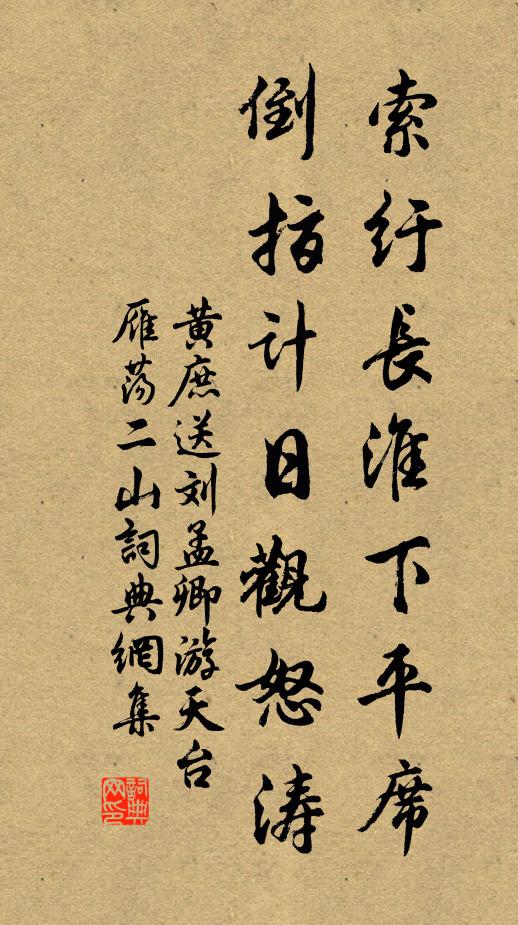 索纡長淮下平席
倒指计日觀怒涛
黃庶送刘孟卿游天台
雁荡二山詞典網集
詞典网印